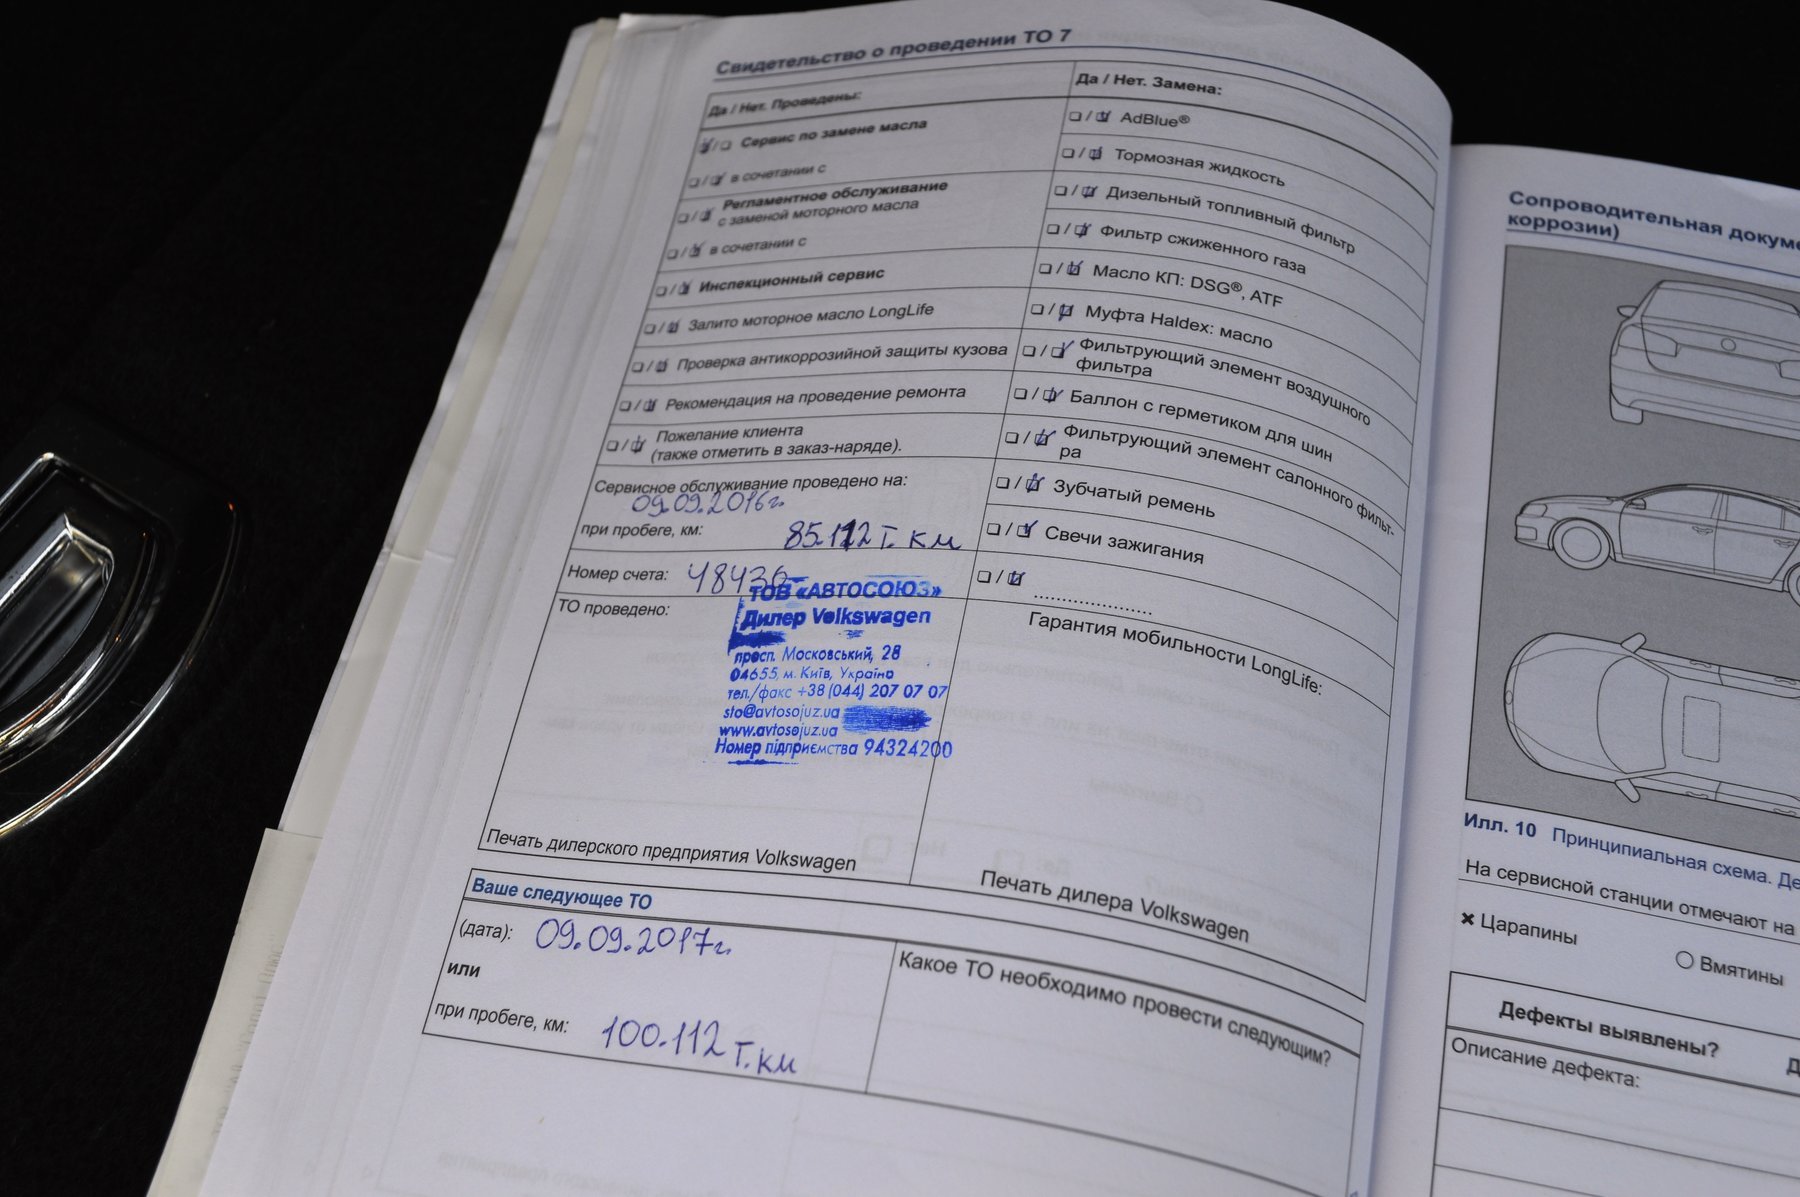 Свидетельство о проведении ТО 7
Да / Нет. Проведены:
Сервис по замене масла
в сочетании с
Регламентное обслуживание
с заменой моторного масла
в сочетании с
Инспекционный сервис
Залито моторное масло LongLife
Проверка антикоррозийной защиты кузова
Рекомендация на проведение ремонта
Пожелание клиента
(также отметить в заказ-наряде).
Сервисное обслуживание проведено на:
09.09.2016г.
при пробеге, км: 85.112 т. км
Номер счета: 48436
ТО проведено:
ТОВ «АВТОСОЮЗ»
Дилер Volkswagen
просп. Московський, 28
04655, м. Київ, Україна
тел./факс +38 (044) 207 07 07
sto@avtosojuz.ua
www.avtosojuz.ua
Номер підприємства 94324200
Печать дилерского предприятия Volkswagen
Да / Нет. Замена:
AdBlue®
Тормозная жидкость
Дизельный топливный фильтр
Фильтр сжиженного газа
Масло КП: DSG®, ATF
Муфта Haldex: масло
Фильтрующий элемент воздушного
фильтра
Баллон с герметиком для шин
Фильтрующий элемент салонного фильт-
ра
Зубчатый ремень
Свечи зажигания
Гарантия мобильности LongLife:
Печать дилера Volkswagen
Ваше следующее ТО
(дата): 09.09.2017г.
или
при пробеге, км: 100.112 т. км
Какое ТО необходимо провести следующим?
Сопроводительная докуме
коррозии)
Илл. 10 Принципиальная схема. Де
На сервисной станции отмечают на
Царапины
Вмятины
Дефекты выявлены? Д
Описание дефекта: